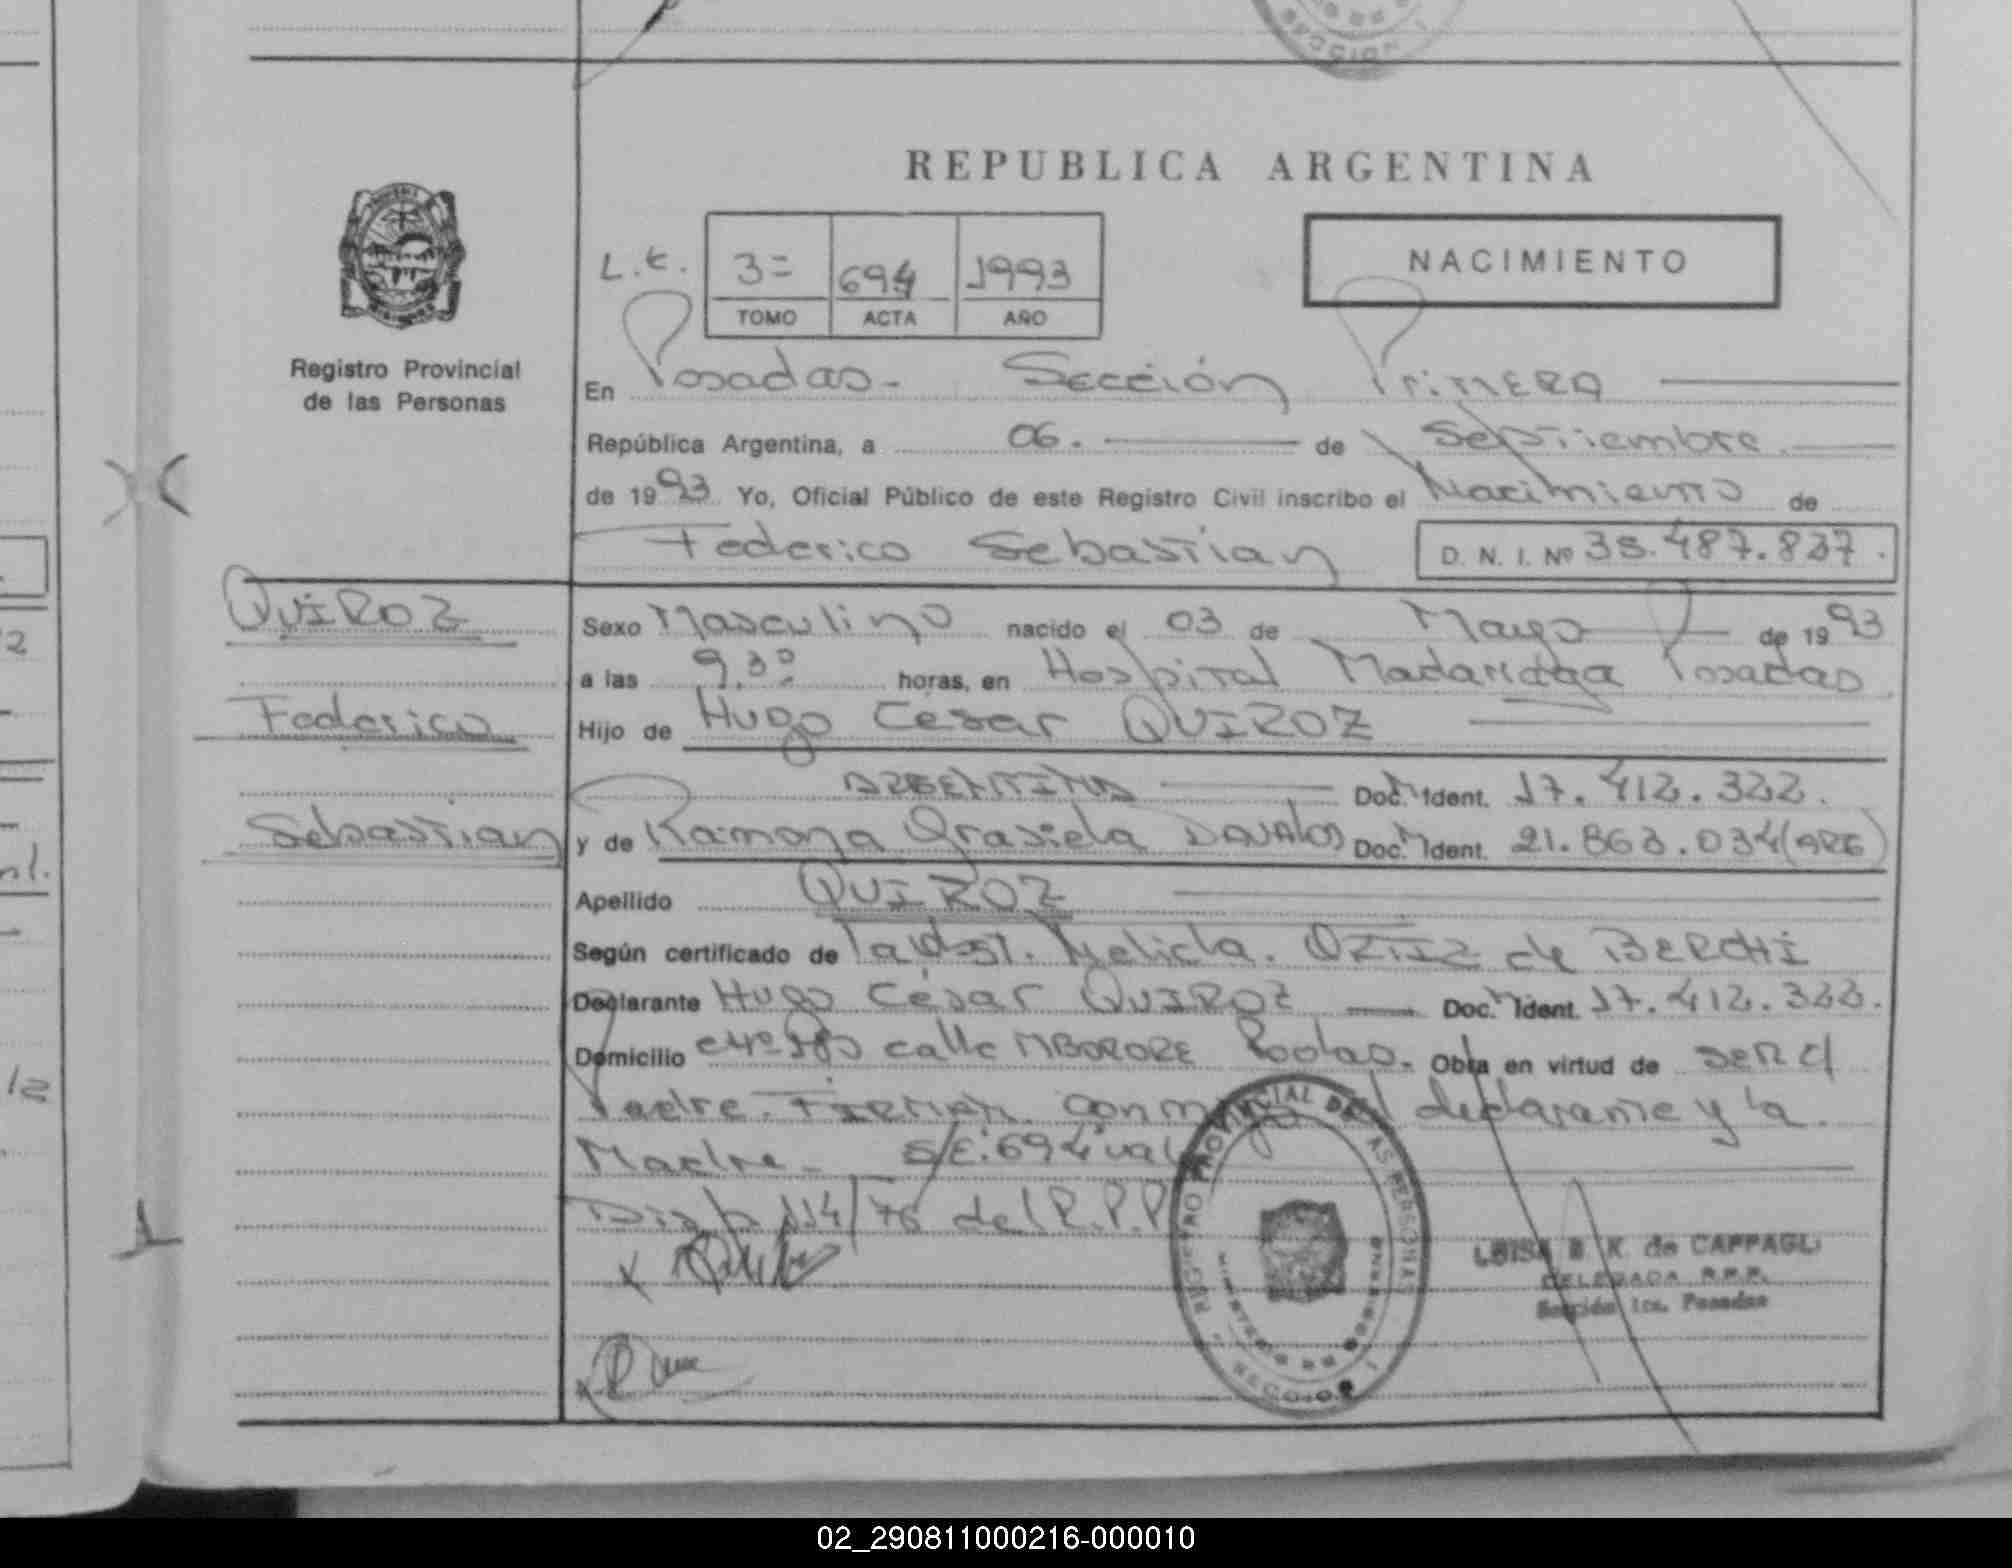 SECCION 1
REPUBLICA ARGENTINA
L.t. 3= 694 1993
TOMO ACTA AÑO
NACIMIENTO
Registro Provincial
de las Personas
En Posadas - Sección Primera
República Argentina, a 06. de Septiembre
de 1993 Yo, Oficial Público de este Registro Civil inscribo el Nacimiento de
Federico Sebastian D. N. I. Nº 35.487.837.
QUIROZ
Federico
Sebastian
Sexo Masculino nacido el 03 de Mayo de 1993
a las 9,30 horas, en Hospital Madariaga Posadas
Hijo de Hugo César QUIROZ
ARGENTINA Doc. Ident. 17.412.322.
y de Ramona Grasiela DAVALOS Doc. Ident. 21.863.034 (ARG)
Apellido QUIROZ
Según certificado de la Obst. Melida. ORTIZ de BERCHI
Declarante Hugo César QUIROZ Doc. Ident. 17.412.322.
Domicilio calle MBORORE Posdas. Obra en virtud de ser el
Padre. Firman conmigo el declarante y la
Madre - S/E: 694 vale
Disp 114/76 del R.P.P
REGISTRO PROVINCIAL DE LAS PERSONAS
MINISTERIO DE GOBIERNO
SECCION 1
LUISA B. K. de CAPPAGLI
DELEGADA R.P.P.
Sección 1ra. Posadas
02_290811000216-000010